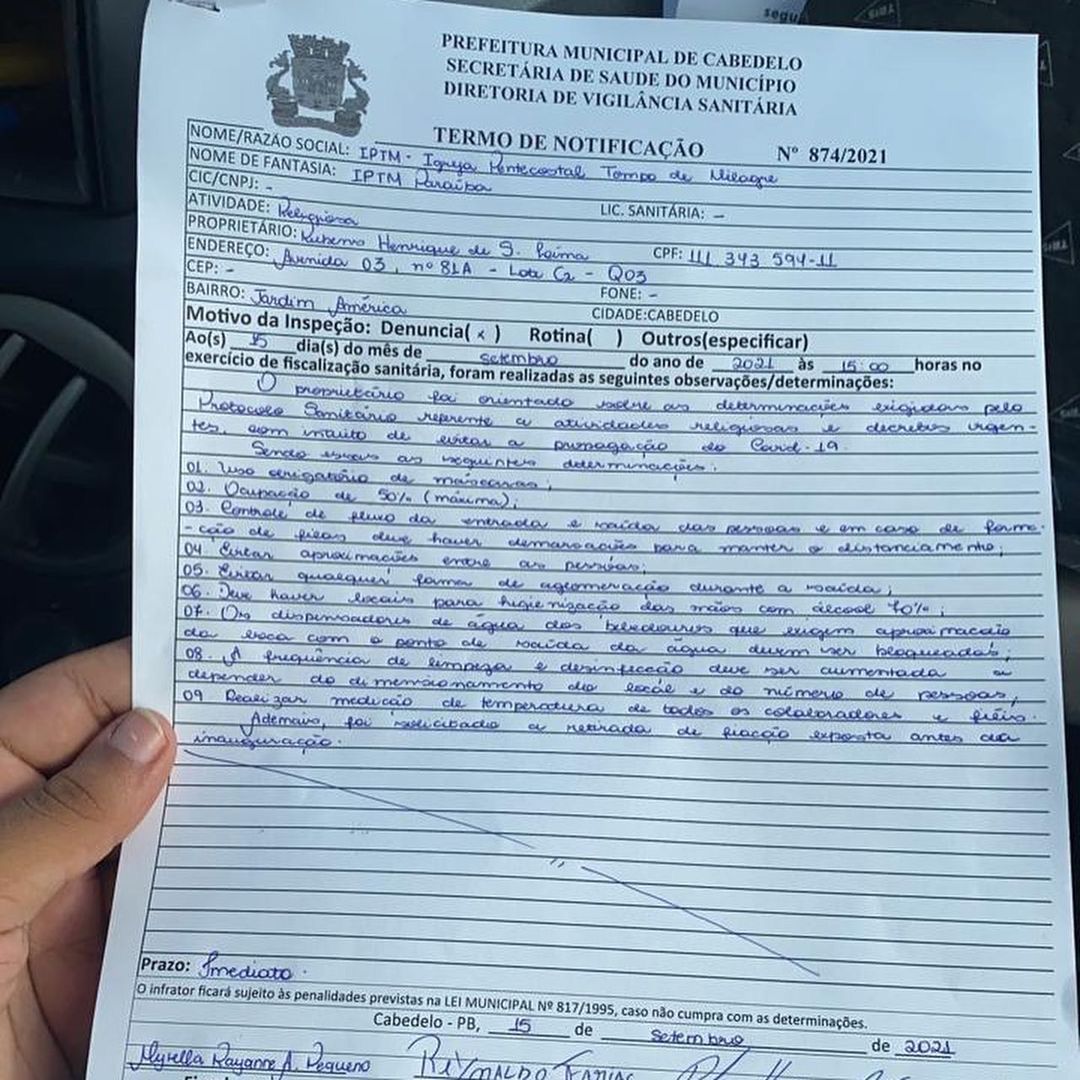 PREFEITURA MUNICIPAL DE CABEDELO
SECRETÁRIA DE SAUDE DO MUNICÍPIO
DIRETORIA DE VIGILÂNCIA SANITÁRIA
TERMO DE NOTIFICAÇÃO Nº 874/2021
NOME/RAZÃO SOCIAL: IPTM - Igreja Pentecostal Tempo de Milagre
NOME DE FANTASIA: IPTM Paraíba
CIC/CNPJ: - LIC. SANITÁRIA: -
ATIVIDADE: Religiosa
PROPRIETÁRIO: Henrique de S. CPF: 111 343 594-11
ENDEREÇO: Avenida 03, nº 81A - Lote C2 - Q03
CEP: - FONE: -
BAIRRO: Jardim América CIDADE:CABEDELO
Motivo da Inspeção: Denuncia( x ) Rotina( ) Outros(especificar)
Ao(s) 15 dia(s) do mês de setembro do ano de 2021 às 15:00 horas no
exercício de fiscalização sanitária, foram realizadas as seguintes observações/determinações:
O proprietário foi orientado sobre as determinações exigidas pelo
Protocolo Sanitário referente a atividades religiosas e decretos vigen-
tes, com intuito de evitar a propagação do Covid-19.
Sendo essas as seguintes determinações:
01. Uso obrigatório de máscaras;
02. Ocupação de 50% (máxima);
03. Controle de fluxo da entrada e saída das pessoas e em caso de forma-
-ção de filas deve haver demarcações para manter o distanciamento;
04. Evitar aproximações entre as pessoas;
05. Evitar qualquer forma de aglomeração durante a saída;
06. Deve haver locais para higienização das mãos com álcool 70%;
07. Os dispensadores de água dos bebedouros que exigem aproximação
da boca com o ponto de saída da água devem ser bloqueados;
08. A frequência de limpeza e desinfecção deve ser aumentada a
depender do dimensionamento do local e do número de pessoas,
09 Realizar medição de temperatura de todos os colaboradores e fiéis.
Ademais, foi solicitado a retirada de fiação exposta antes da
inauguração.
Prazo: Imediato.
O infrator ficará sujeito às penalidades previstas na LEI MUNICIPAL Nº 817/1995, caso não cumpra com as determinações.
Cabedelo - PB, 15 de Setembro de 2021
Myrella Rayanne A. Pequeno REYNALDO FARIAS